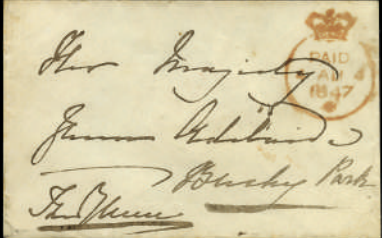 PAID
1847
Her Majesty
Queen Adelaide
Bushy Park
The Queen